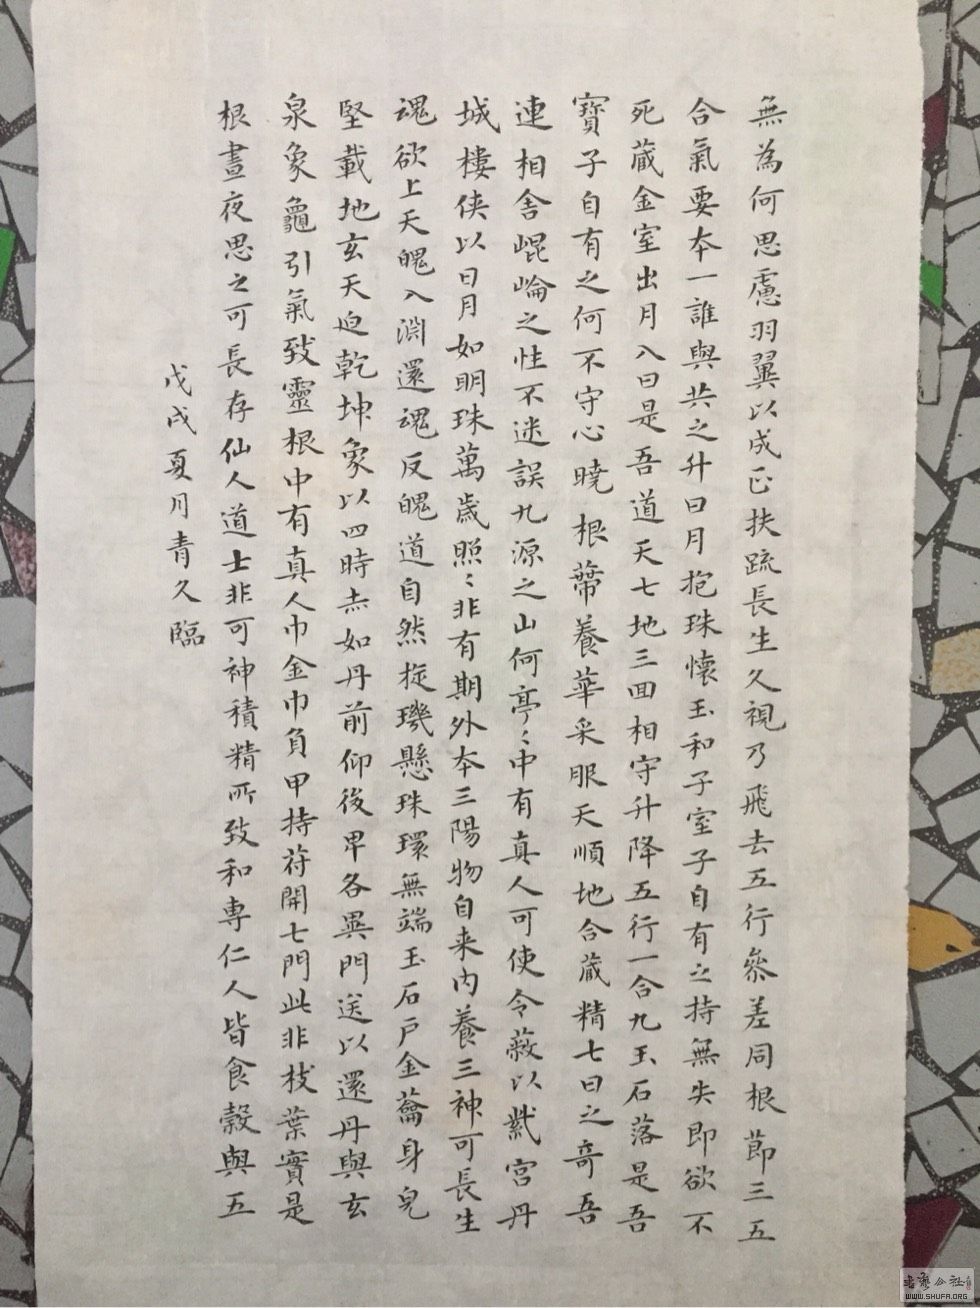 無為何思慮羽翼以成正扶踈長生久視乃飛去五行叅差同根莭三五
合氣要夲一誰與共之升日月抱珠懷玉和子室子自有之持無失即欲不
死藏金室出月入日是吾道天七地三回相守升降五行一合九玉石落是吾
寶子自有之何不守心曉根蔕養華采服天順地合藏精七日之奇吾
連相舎崐崘之性不迷誤九源之山何亭〻中有真人可使令蔽以紫宮丹
城樓俠以日月如明珠萬歲照〻非有期外夲三陽物自来内養三神可長生
魂欲上天魄入淵還魂反魄道自然琁璣懸珠環無端玉石戶金籥身皃
堅載地玄天迫乾坤象以四時赤如丹前仰後卑各異門送以還丹與玄
泉象龜引氣致靈根中有真人巾金巾負甲持苻開七門此非枝葉實是
根晝夜思之可長存仙人道士非可神積精所致和專仁人皆食穀與五
戊戌夏月青久臨
書藝公社
WWW.SHUFA.ORG